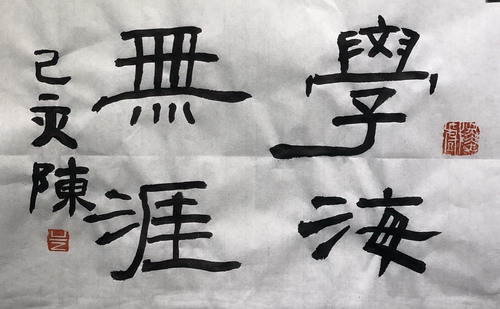 學海
無涯
己亥陳